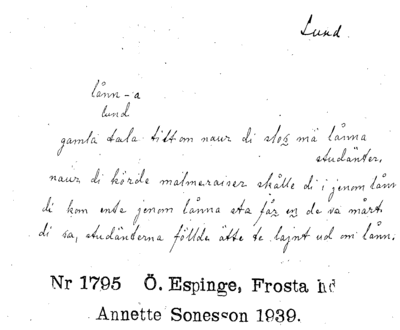 Lund
lånn-a
lund
gamla tala titt om naur di slos mä lånna
studänter.
naur di körde malmeraiser skålle di i jenom lånn
di kom ente jenom lånna sta får en de va mårt
di sa, studänterna följde ätte te lajnt ud om lånn.
Nr 1795 Ö. Espinge, Frosta hd
Annette Sonesson 1939.